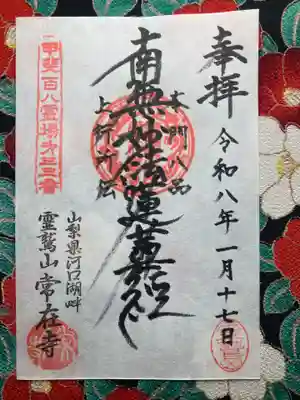 奉拝
令和八年一月十七日
本門八品
南無妙法蓮華経
上行所伝
甲斐百八霊場
山梨県河口湖畔
霊鷲山常在寺